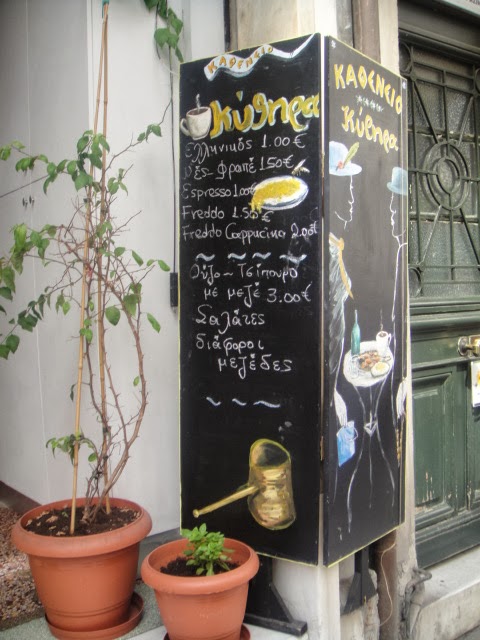 ΚΑΦΕΝΕΙΟ
Κύθηρα
Ελληνικός 1.00€
Νές-φραπέ 1.50€
Espresso 1.00€
Freddo 1.50€
Freddo Cappucino 2.00€
Ούζο - Τσίπουρο
με μεζέ 3.00€
Σαλάτες
διάφοροι
μεζέδες
ΚΑΦΕΝΕΙΟ
Κύθηρα